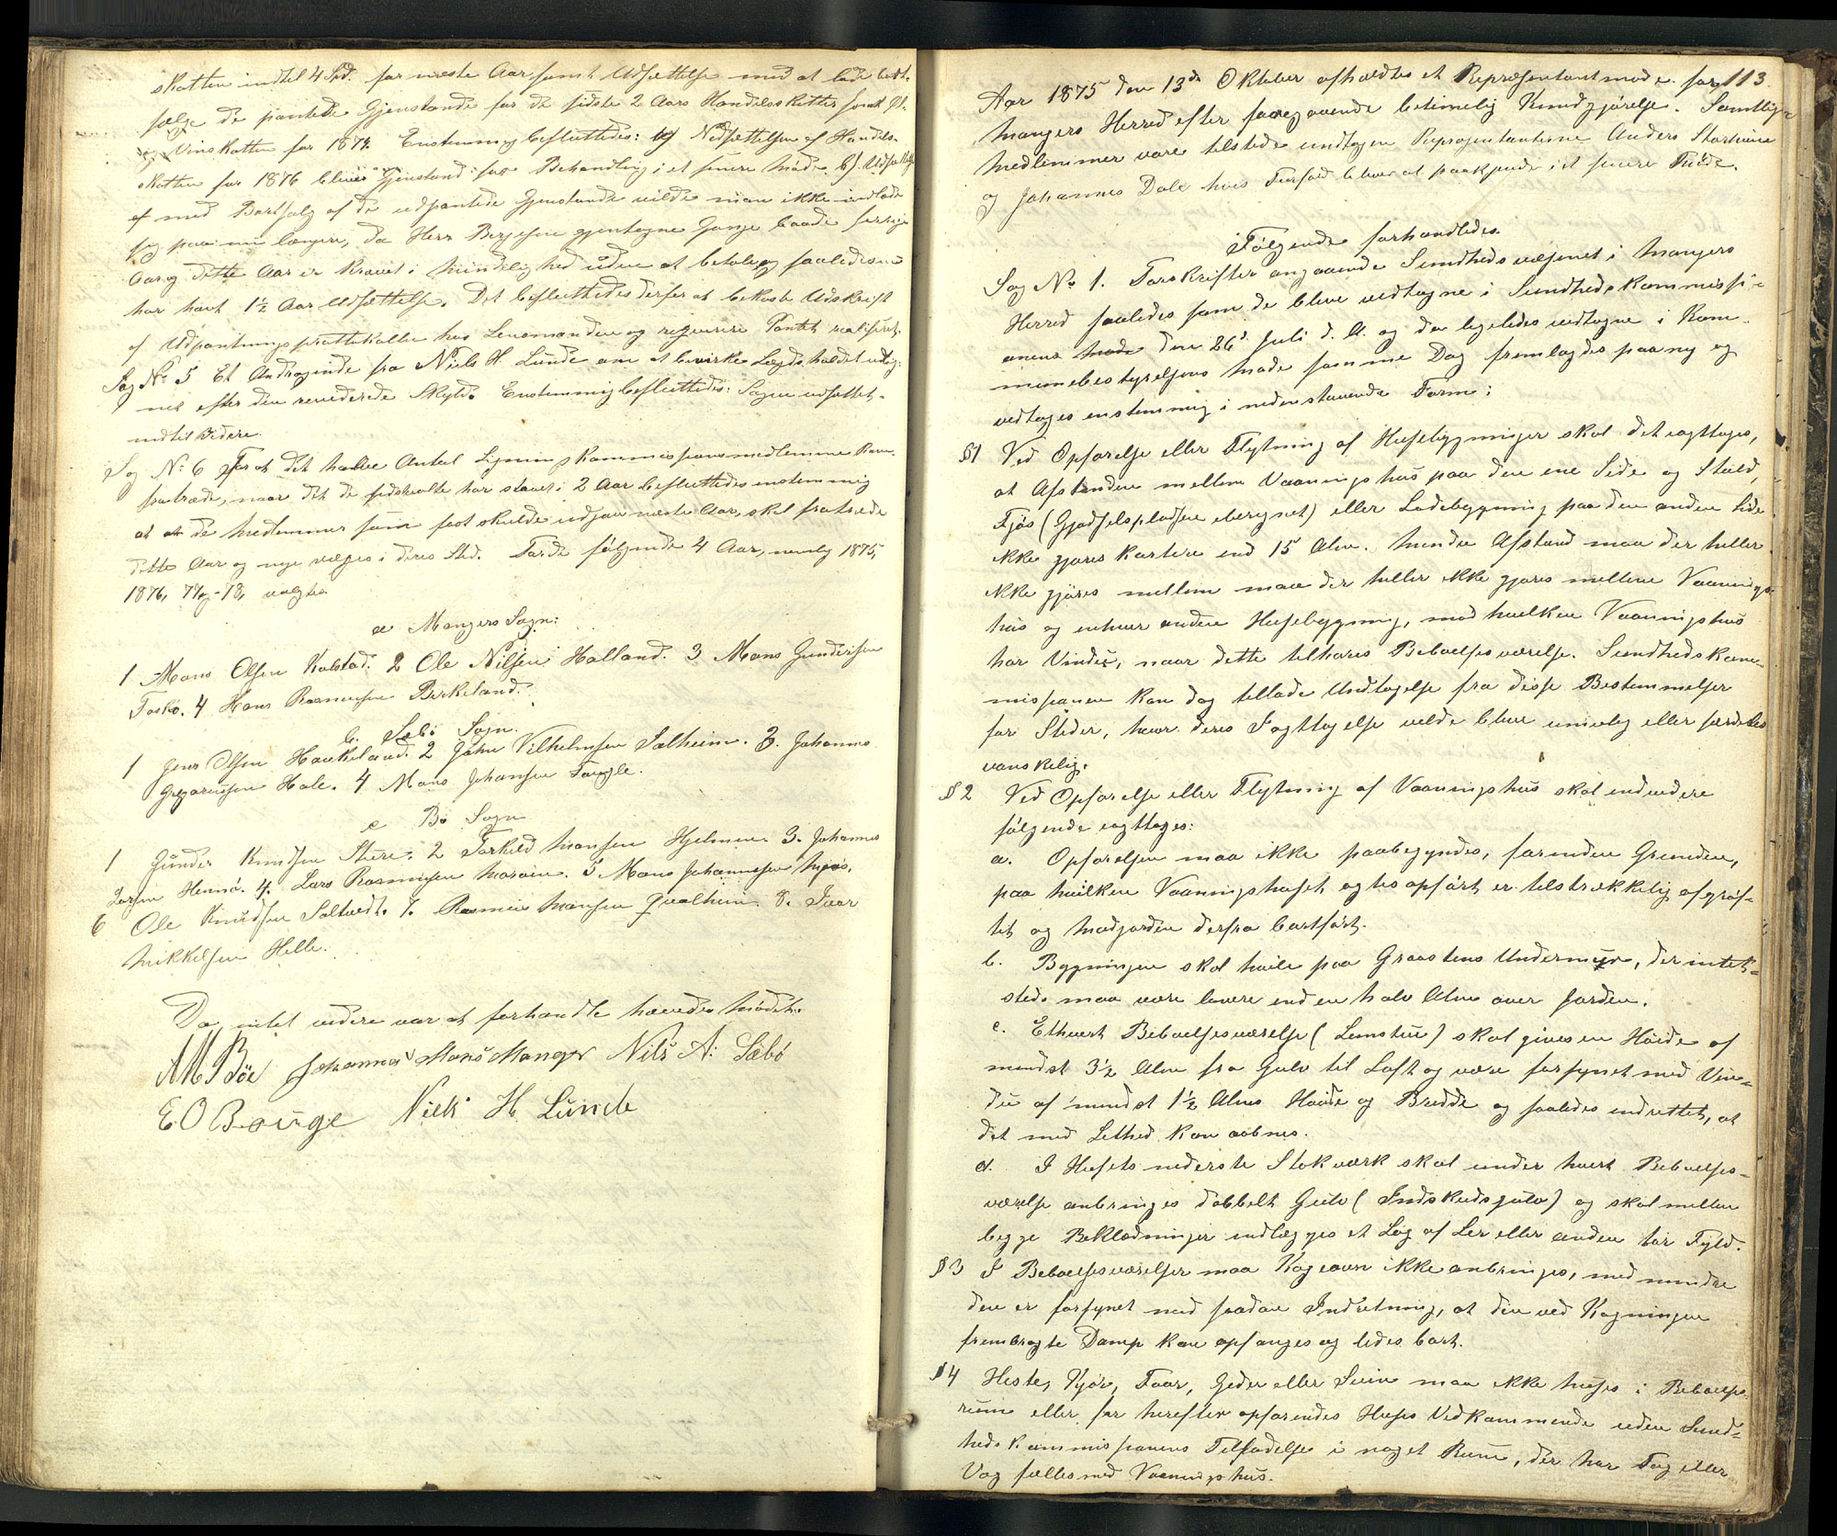 skatten indtil 4 Spd. for næste Aar samt Udsættelse med at lade bort-
sælge de pantede Gjenstande for de sidste 2 Aars Handelsskatter samt Øl-
og Vinskatten for 1874. Enstemmig besluttedes: a) Nedsættelsen af Handels-
skatten for 1876 bliver Gjenstand for Behandling i et senere Møde. b) Udsættelse
med Bortsalg af de udpantede Gjenstande vilde man ikke indlade
sig paa nu længere, da Herr gjentagne Gange baade forrige
Aar og dette Aar er krævet i Mindelighed uden at betale og saaledes
har havt 1½ Aar Udsættelse. Det besluttedes derfor at bekoste Udskrift
af Udpantningsprottekollen hos Lensmanden og Pantet realiseret.
Sag No 5 Et Andragende fra Niels H Lunde om at bevirke Lægdeholdet
efter den reviderede Skyld. Enstemmig besluttedes: Sagen udsættes
indtil videre.
Sag No 6 For at det halve Antal Ligningskommissionsmedlemmer kan
fratræde, naar det de sidstvalte har staaet i 2 Aar besluttedes enstemmig
at de Medlemmer som først skulde udgaa næste Aar, skal fratræde
dette Aar og nye vælges i deres Sted. For de følgende 4 Aar, nemlig 1875,
1876, 77 og -78, valgtes
a Mangers Sogn:
1 Mons Olsen Kolstad. 2 Ole Nilsen Halland. 3 Mons Gundersen
Toskø. 4 Hans Rasmussen Birkeland.
b. Sæbø Sogn.
1 Jens Olsen Haukeland. 2 Jakob Vilhelmsen Solheim. 3. Johannes
Gregoriussen Hole. 4 Mons Johansen
c Bø Sogn
1 Gunder Knudsen Sture. 2 Torkild Monsen Hjelmen. 3. Johannes
Larsen Hennø. 4. Lars Rasmussen 5 Mons Johannessen
6 Ole Knudsen Soltvedt. 7. Rasmus Monsen Qvalheim. 8. Ivar
Mikkelsen Helle.
Da intet videre var at forhandle hævedes Mødet.
A M Bøe Johannes Mons Manger Nils A: Sæbø
E O Bouge Niels H Lunde
113
Aar 1875 den 13de Oktober afholdtes et Repræsentantmøde for
Mangers Herred efter foregaaende betimelig Kundgjørelse. Samtlige
Medlemmer vare tilstede undtagen Repræsentanterne Anders
og Johannes Dale hvis Forfald bliver at paakjende i et senere Møde.
Følgende forhandledes
Sag No 1. Forskrifter angaaende Sundhedsvæsenet i Mangers
Herred saaledes som de bleve vedtagne i Sundhedskommissi-
onens Møde den 26de Juli d. A. og da ligeledes vedtagne i Kom-
munebestyrelsens Møde samme Dag fremlagdes paany og
vedtoges enstemmig i nedenstaaende Form:
§1 Ved Opførelse eller Flytning af Husebygninger skal det iagttages,
at Afstanden mellem Vaaningshus paa den ene Side og Stald,
Fjøs (Gjødselspladsen iberegnet) eller Ladebygning paa den anden Side
ikke gjøres kortere end 15 Alen. Mindre Afstand maa der heller
ikke gjøres mellem maa der heller ikke gjøres mellem Vaanings-
hus og enhver anden Husebygning, mod hvilken Vaaningshus
har Vindu, naar dette tilhører Beboelsesværelse. Sundhedskom-
missionen kan dog tillade Undtagelse fra disse Bestemmelser
for Steder, hvor deres Iagttagelse vilde blive umulig eller særdeles
vanskelig.
§2 Ved Opførelse eller Flytning af Vaaningshus skal endvidere
følgende iagttages:
a. Opførelsen maa ikke paabegyndes, førinden Grunden,
paa hvilken Vaaningshuset agtes opført, er tilstrækkelig afgrøf-
tet og Madjorden derfra bortført.
b. Bygningen skal hvile paa Graastens Undermur, der intet-
steds maa være lavere end en halv Alen over Jorden.
c. Ethvert Beboelsesværelse (Lemstue) skal gives en Høide af
mindst 3½ Alen fra Gulv til Loft og være forsynet med Vin-
du af mindst 1½ Alens Høide og Bredde og saaledes indrettet, at
det med Lethed kan aabnes.
d. I Husets nederste Stokværk skal under hvert Beboelses-
værelse anbringes dobbelt Gulv (Indskudsgulv) og skal mellem
begge Beklædninger indlægges et Lag af Ler eller anden tør Fyld.
§3 I Beboelsesværelser maa Kogeovn ikke anbringes, med mindre
den er forsynet med saadan Indretning, at den ved Kogningen
frembragte Damp kan opfanges og ledes bort.
§4 Heste, Kjør, Faar, Geder eller Svin maa ikke huses i Beboelses-
rum eller for herefter opførendes Huses Vedkommende uden Sund-
hedskommissionens Tilladelse i noget Rum, der har Tag eller
Væg fælles med Vaaningshus.